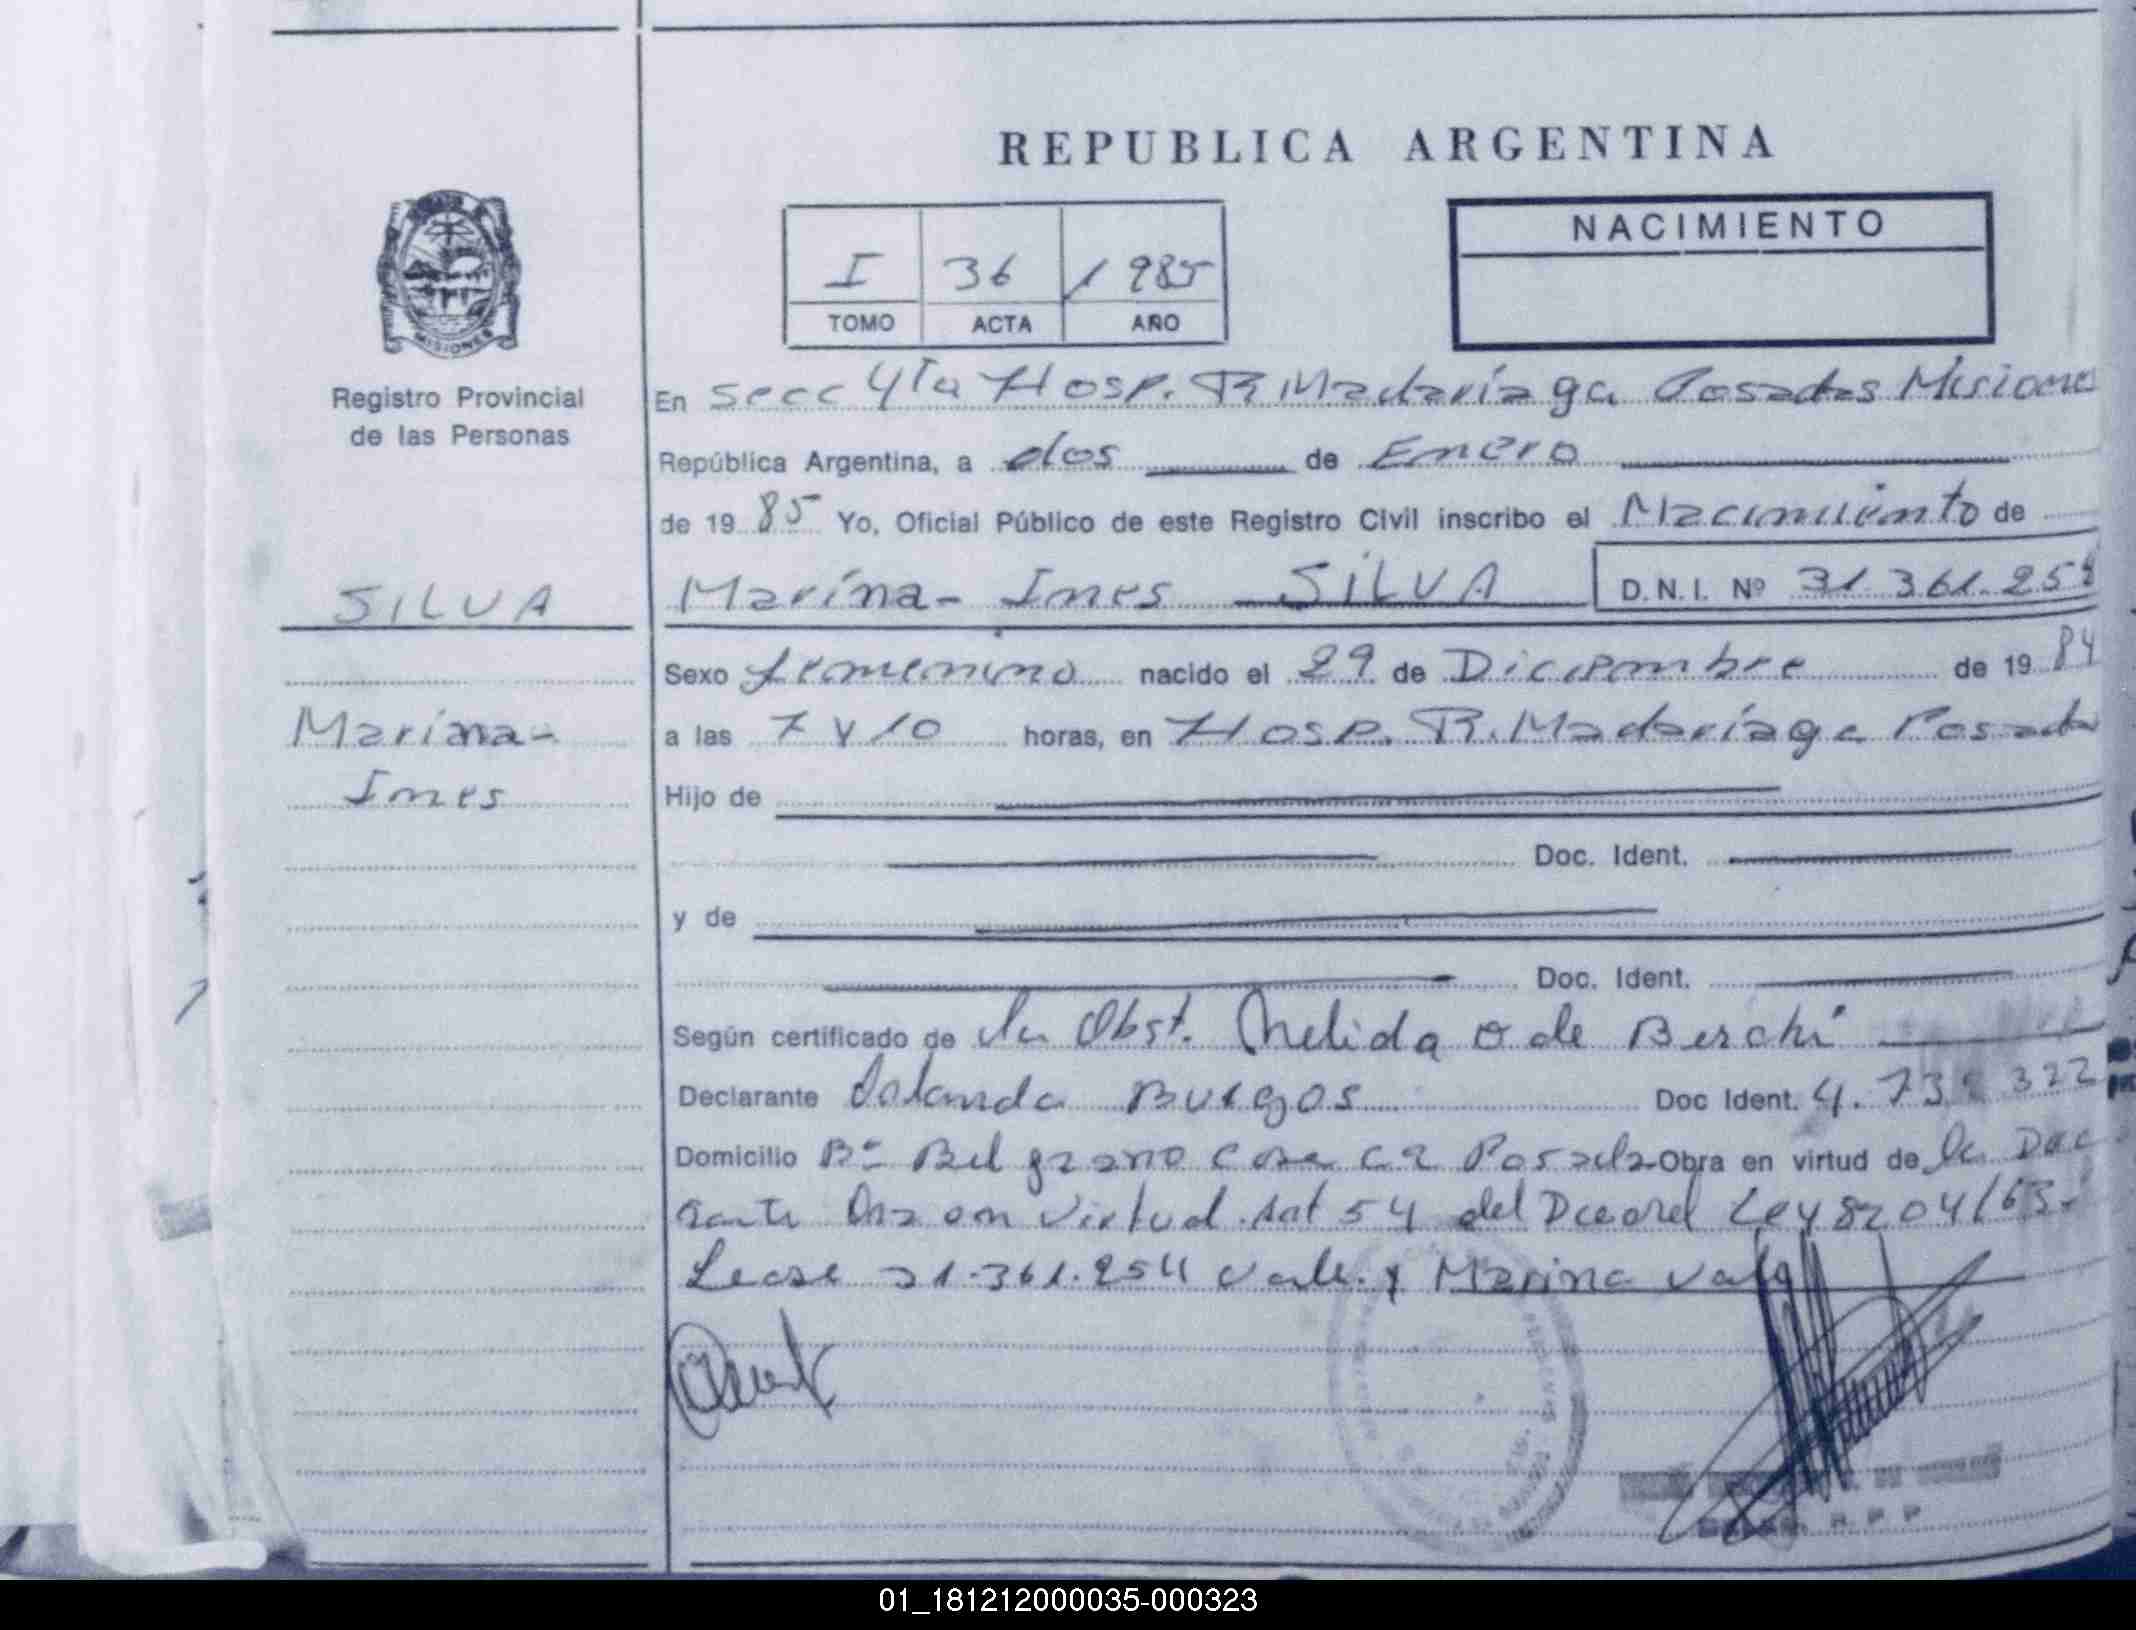 REPUBLICA ARGENTINA
NACIMIENTO
I 36 1985
TOMO ACTA AÑO
MISIONES
Registro Provincial
de las Personas
En Secc 4ta Hosp. R Madariaga Posadas Misiones
República Argentina, a dos de Enero
de 19 85 Yo, Oficial Público de este Registro Civil inscribo el Nacimiento de
SILVA
Marina- Ines SILVA D.N.I. Nº 31.361.254
Sexo femenino nacido el 29 de Diciembre de 19 84
Marina-
Ines
a las 7 y 10 horas, en Hosp. R. Madariaga Posadas
Hijo de
Doc. Ident.
y de
Doc. Ident.
Según certificado de la Obst. Nelida O de Berchi
Declarante Iolanda Burgos Doc Ident. 4.73 322
Domicilio Bº Belgrano casa Posadas Obra en virtud de la
virtud Art 54 del Ley 8204/63.
Lease 31.361.254 vale y Marina vale
01_181212000035-000323